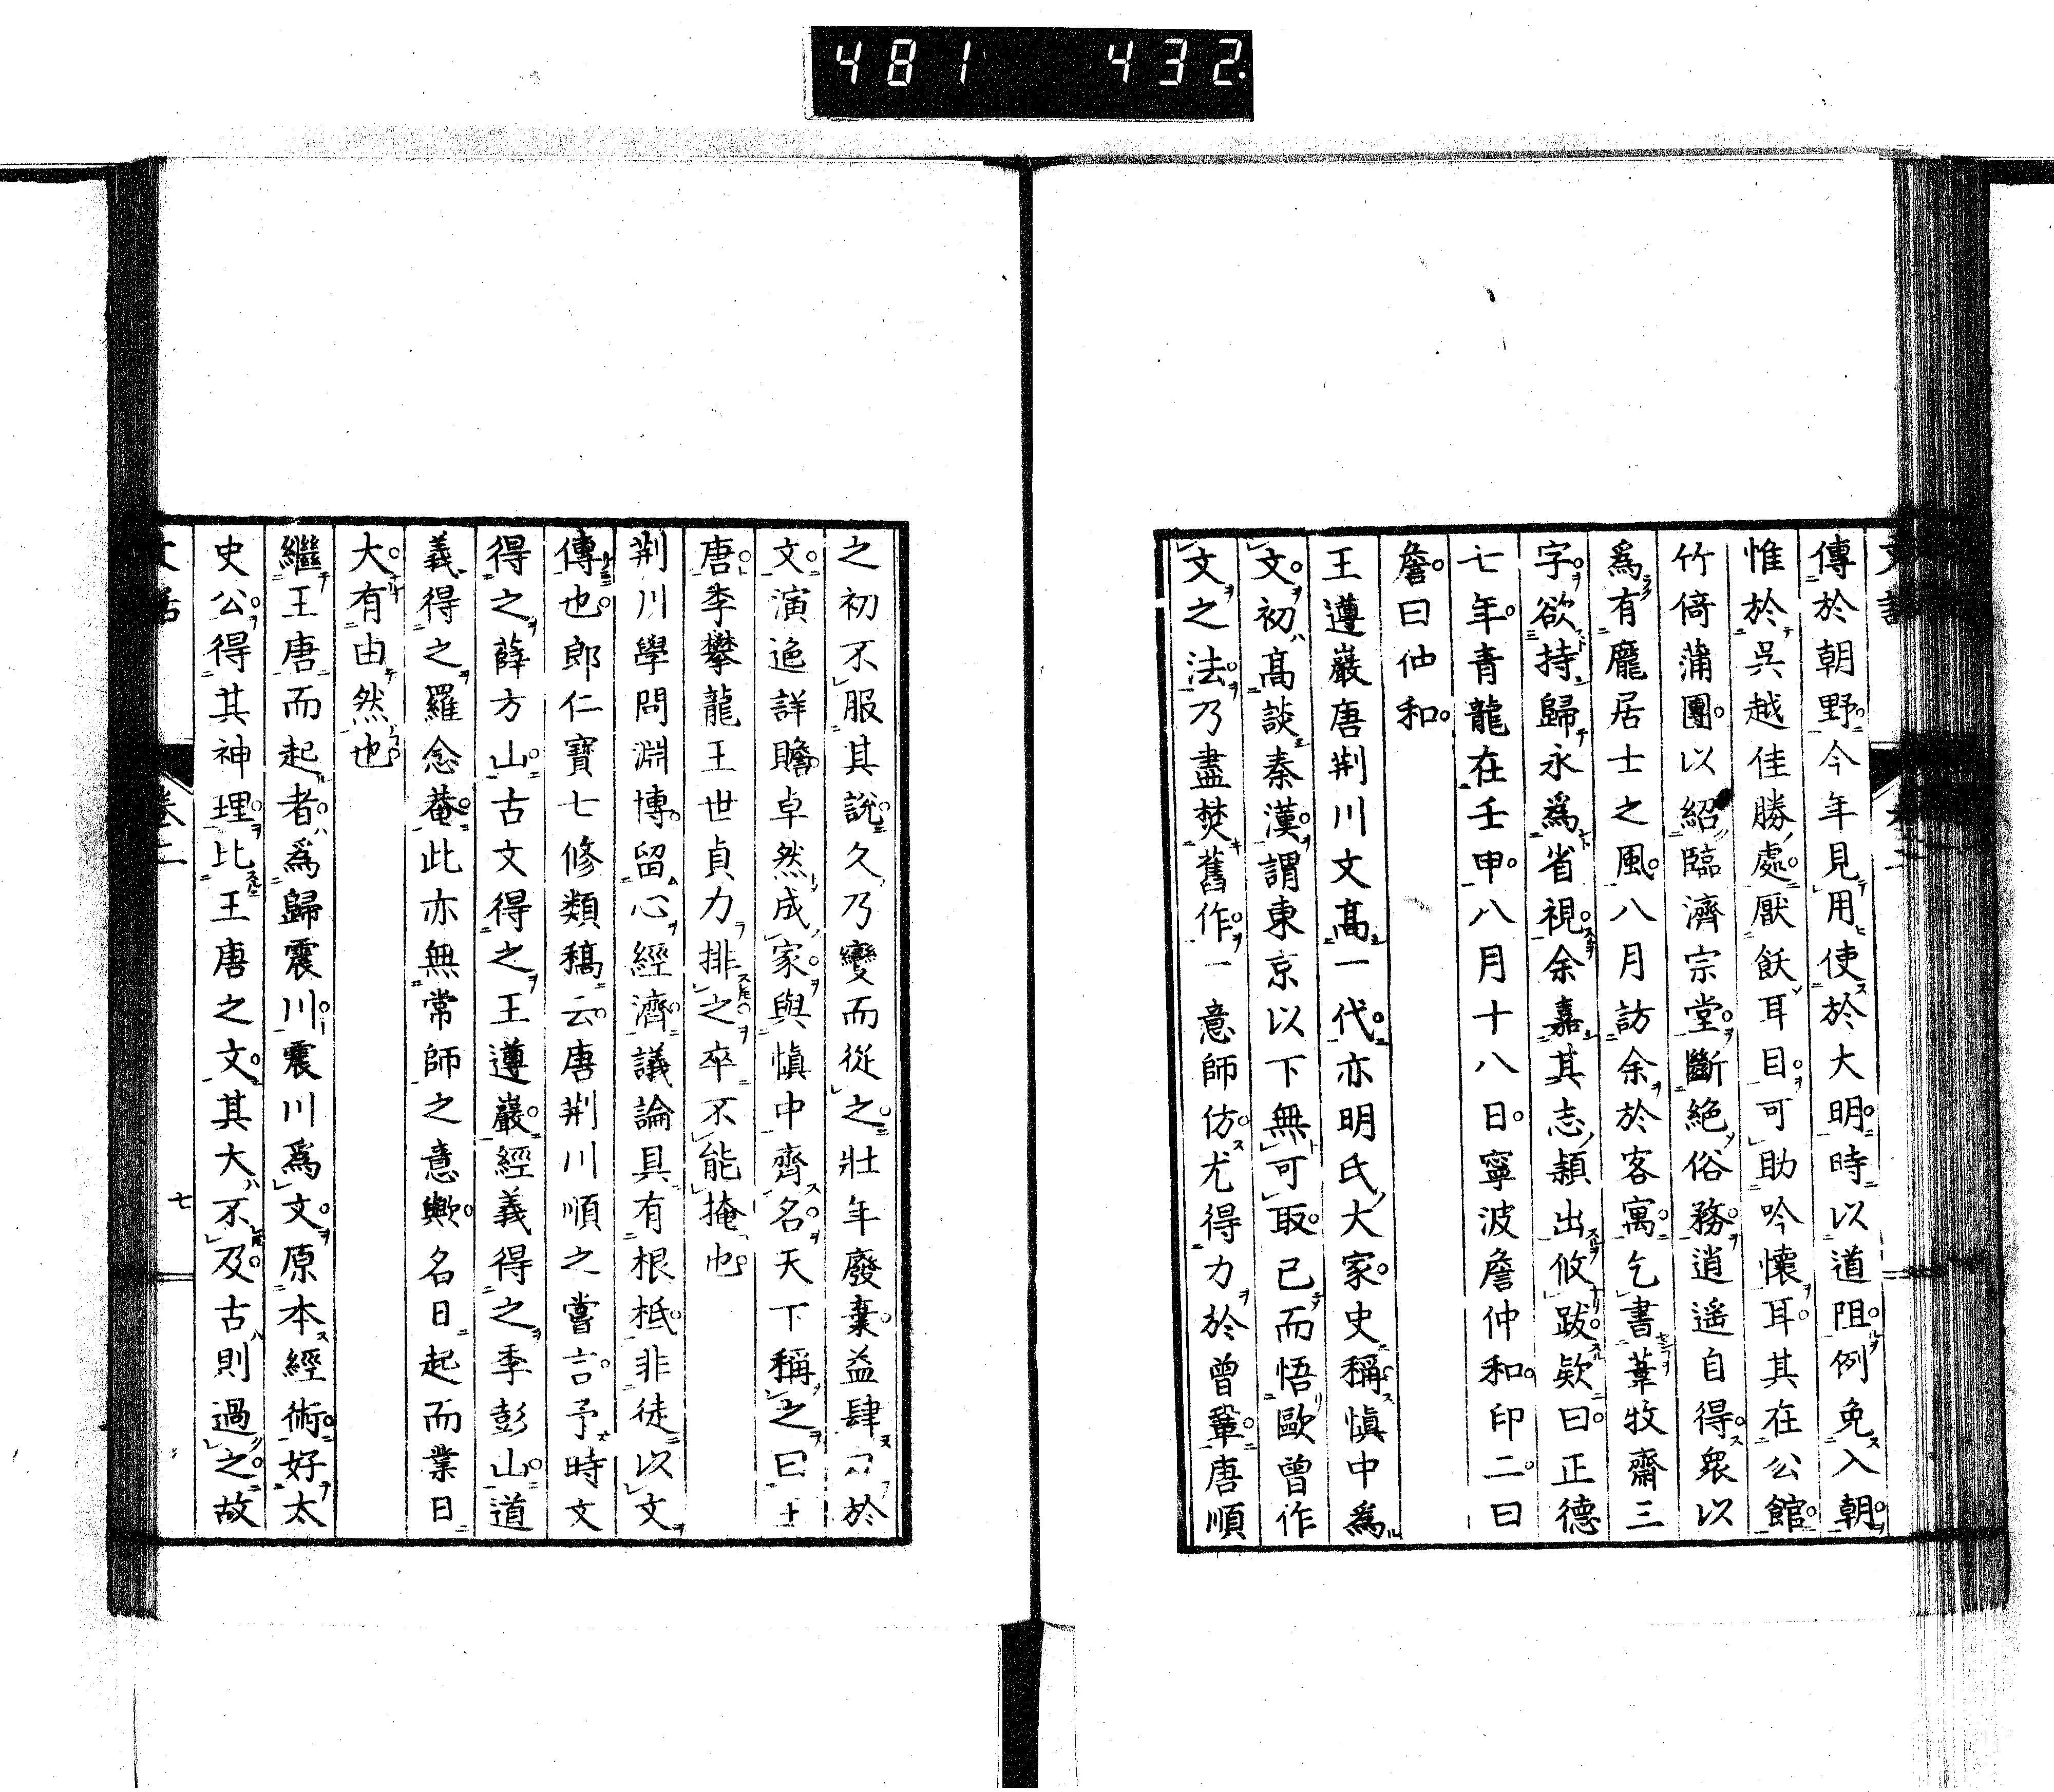 481 432
傳於朝野今年見用使於大明時以道阻例免入朝
惟於呉越佳勝處厭飫耳目可助吟懷耳其在公館
竹倚蒲團以紹臨濟宗堂斷絶俗務逍遥自得衆以
爲有龐居士之風八月訪余於客寓乞書葦牧齋三
字欲持歸永爲省視余嘉其志頴出攸跋欵曰正德
七年青龍在壬申八月十八日寧波詹仲和印二曰
詹曰仲和
王遵巖唐荆川文髙一代亦明氏大家史稱愼中爲
文初髙談秦漢謂東京以下無可取已而悟歐曾作
文之法乃盡焚舊作一意師仿尤得力於曾鞏唐順
之初不服其説久乃變而從之壯年廢棄益肆力於
文演迤詳贍卓然成家與愼中齊名天下稱之曰王
唐李攀龍王世貞力排之卒不能掩也
荆川學問淵博留心經濟議論具有根柢非徒以文
傳也郎仁寶七修類稿云唐荆川順之嘗言予時文
得之薛方山古文得之王遵巖經義得之季彭山道
義得之羅念菴此亦無常師之意歟名日起而業日
大有由然也
繼王唐而起者爲歸震川震川爲文原本經術好太
史公得其神理比王唐之文其大不及古則過之故
文話 卷二 七